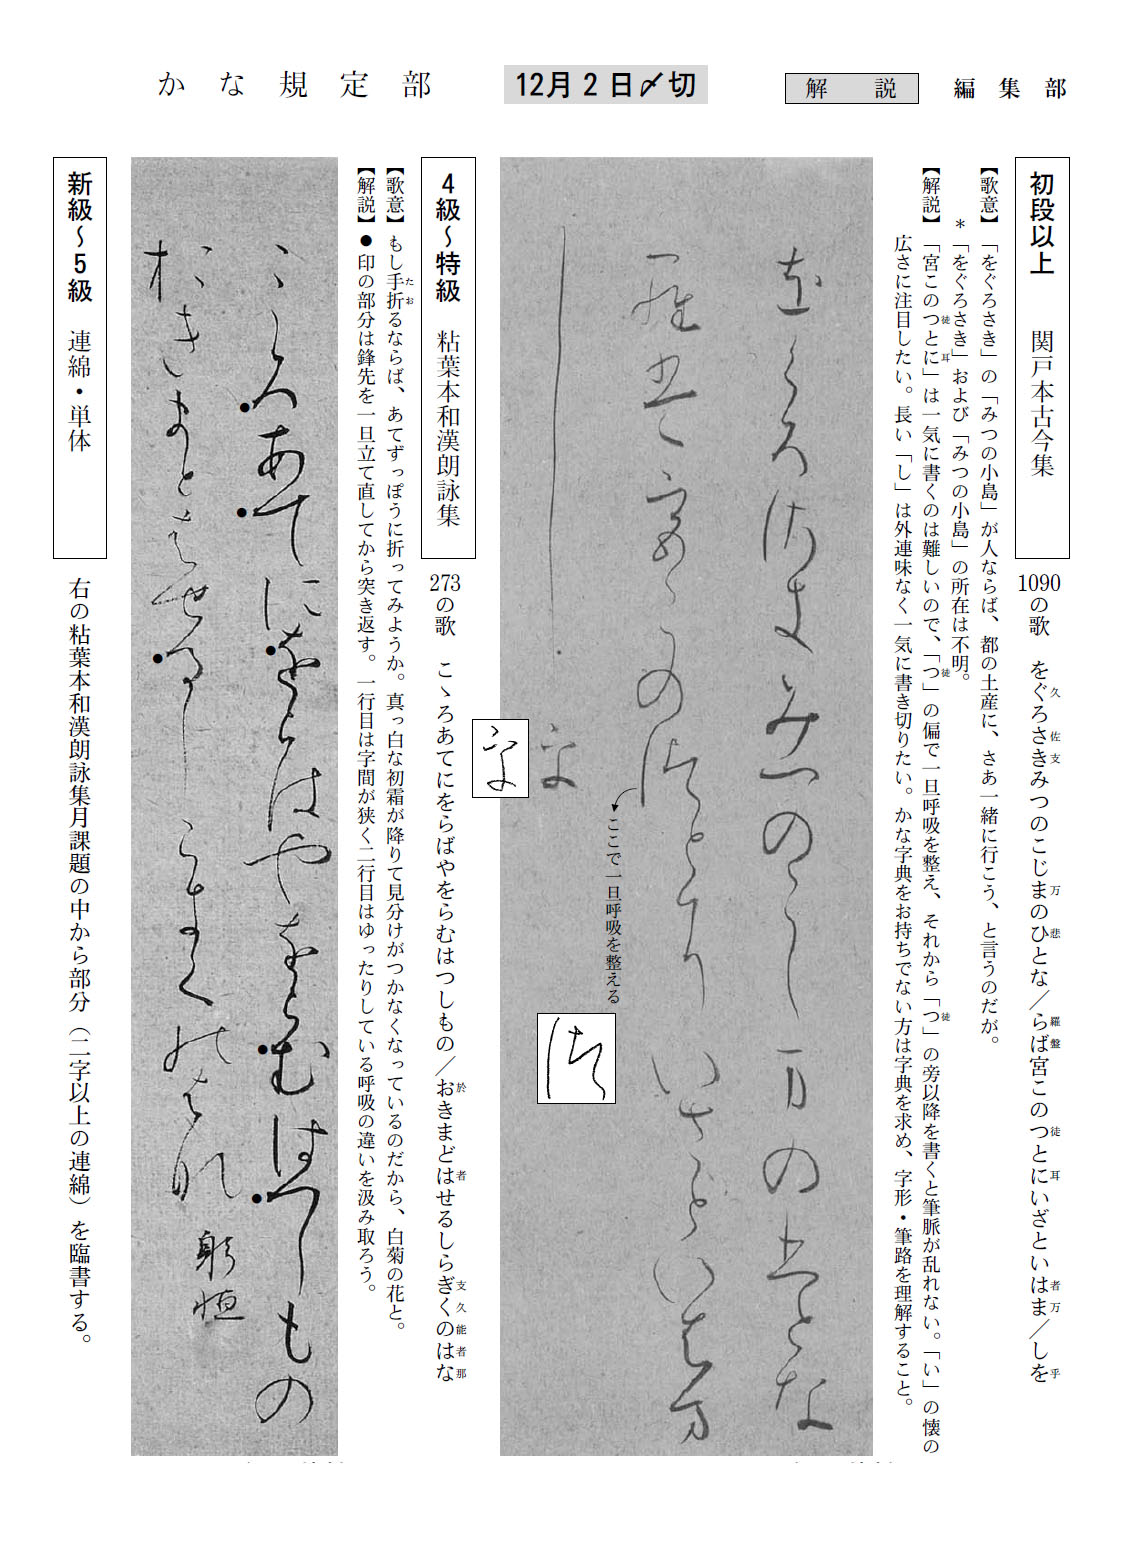 かな規定部
12月2日〆切
解説
編集部
初段以上　関戸本古今集
1090の歌　をぐろさきみつのこじまのひとな／らば宮このつとにいざといはま／しを
久 佐 支 万 悲 羅 盤 徒 耳 者 万 乎
【歌意】「をぐろさき」の「みつの小島」が人ならば、都の土産に、さあ一緒に行こう、と言うのだが。
＊「をぐろさき」および「みつの小島」の所在は不明。
【解説】「宮このつとに」は一気に書くのは難しいので、「つ」の偏で一旦呼吸を整え、それから「つ」の旁以降を書くと筆脈が乱れない。「い」の懐の
徒 耳 徒 徒
広さに注目したい。長い「し」は外連味なく一気に書き切りたい。かな字典をお持ちでない方は字典を求め、字形・筆路を理解すること。
ここで一旦呼吸を整える
4級～特級　粘葉本和漢朗詠集
273の歌　こゝろあてにをらばやをらむはつしもの／おきまどはせるしらぎくのはな
於 者 支 久 能 者 那
【歌意】もし手折るならば、あてずっぽうに折ってみようか。真っ白な初霜が降りて見分けがつかなくなっているのだから、白菊の花と。
たお
【解説】●印の部分は鋒先を一旦立て直してから突き返す。一行目は字間が狭く二行目はゆったりしている呼吸の違いを汲み取ろう。
こゝろあてにをらはやをらむはつしもの
おきまとはせるしらきくのはな
躬恒
新級～5級　連綿・単体
右の粘葉本和漢朗詠集月課題の中から部分（二字以上の連綿）を臨書する。